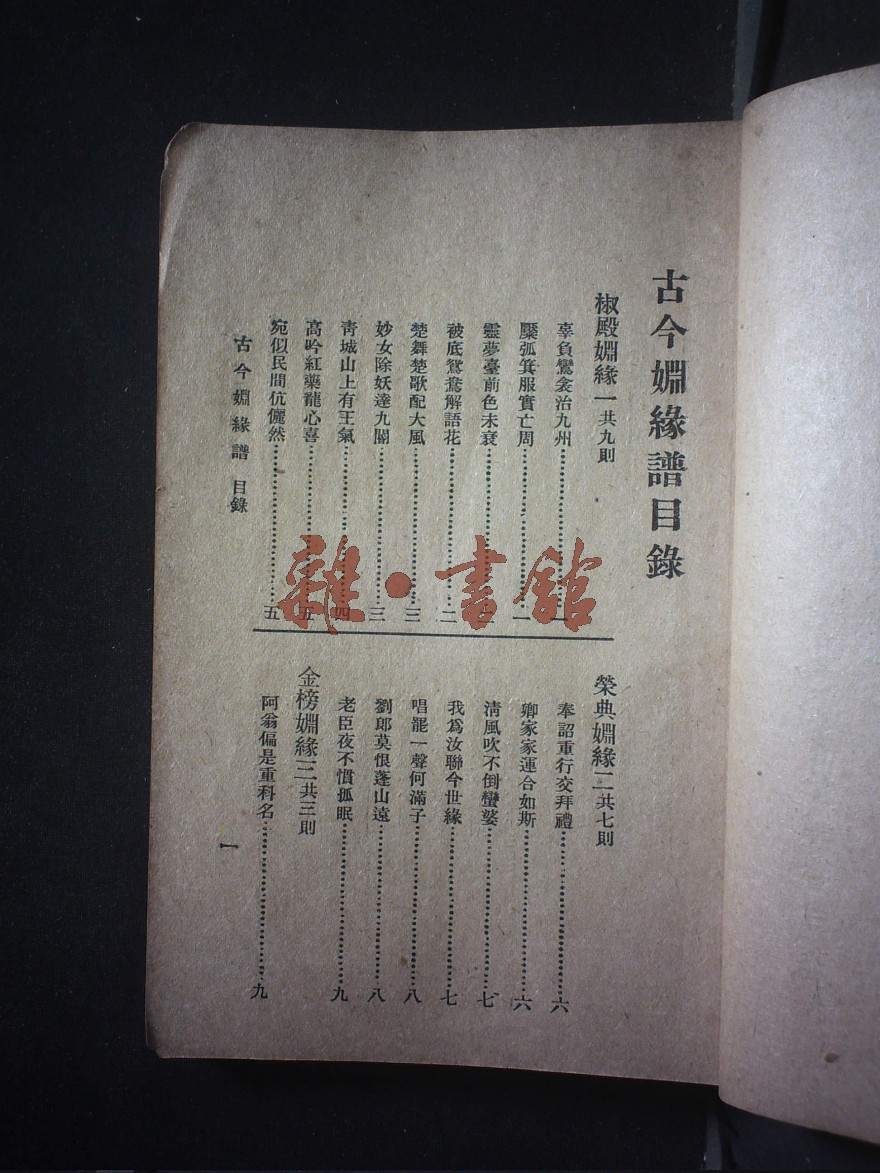 古今婣緣譜目錄
椒殿婣緣一共九則
辜負鸞衾治九州……一
檿弧箕服實亡周……一
靈夢臺前色未衰……
被底鴛鴦解語花……二
楚舞楚歌配大風……三
妙女除妖達九關……三
靑城山上有王氣……四
高吟紅藥龍心喜……五
宛似民間伉儷然……五
榮典婣緣二共七則
奉詔重行交拜禮……六
卿家家運合如斯……六
淸風吹不倒蠻婆……七
我爲汝聯今世緣……七
唱罷一聲何滿子……八
劉郎莫恨蓬山遠……八
老臣夜不慣孤眠……九
金榜婣緣三共三則
阿翁偏是重科名……九
古今婣緣譜 目錄
一
雜·書館